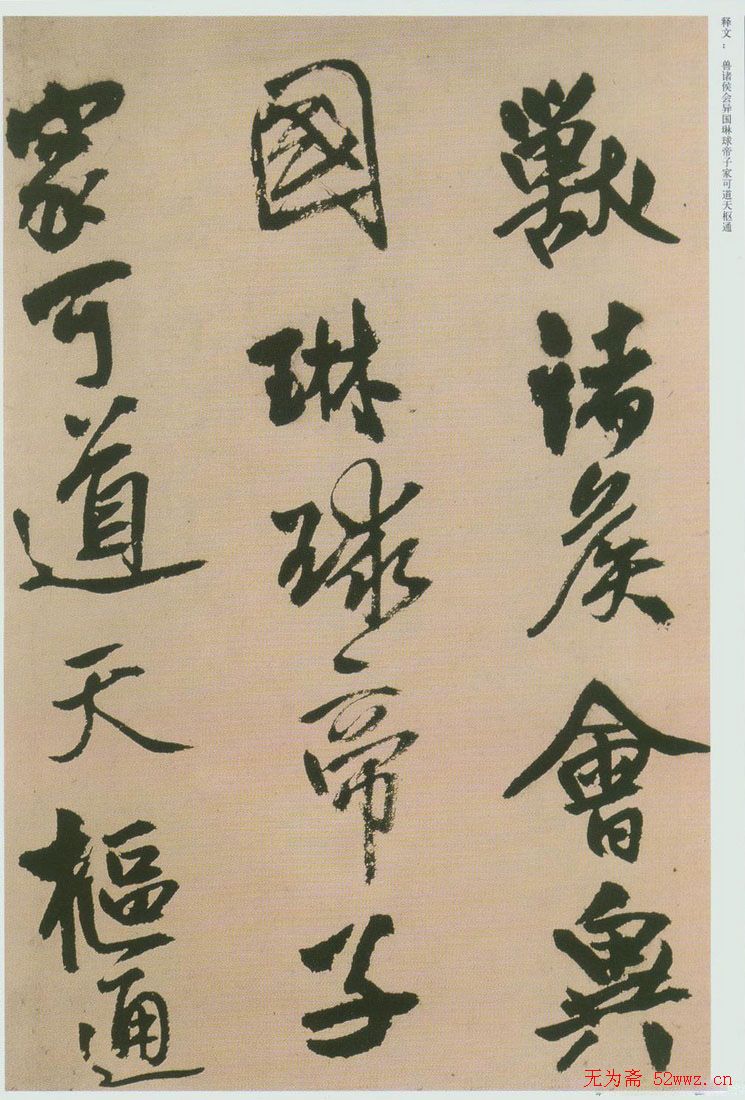 獸諸侯會異
國琳球帝子
家可道天樞通
释文：兽诸侯会异国琳球帝子家可道天枢通
无为斋 52wwz.cn